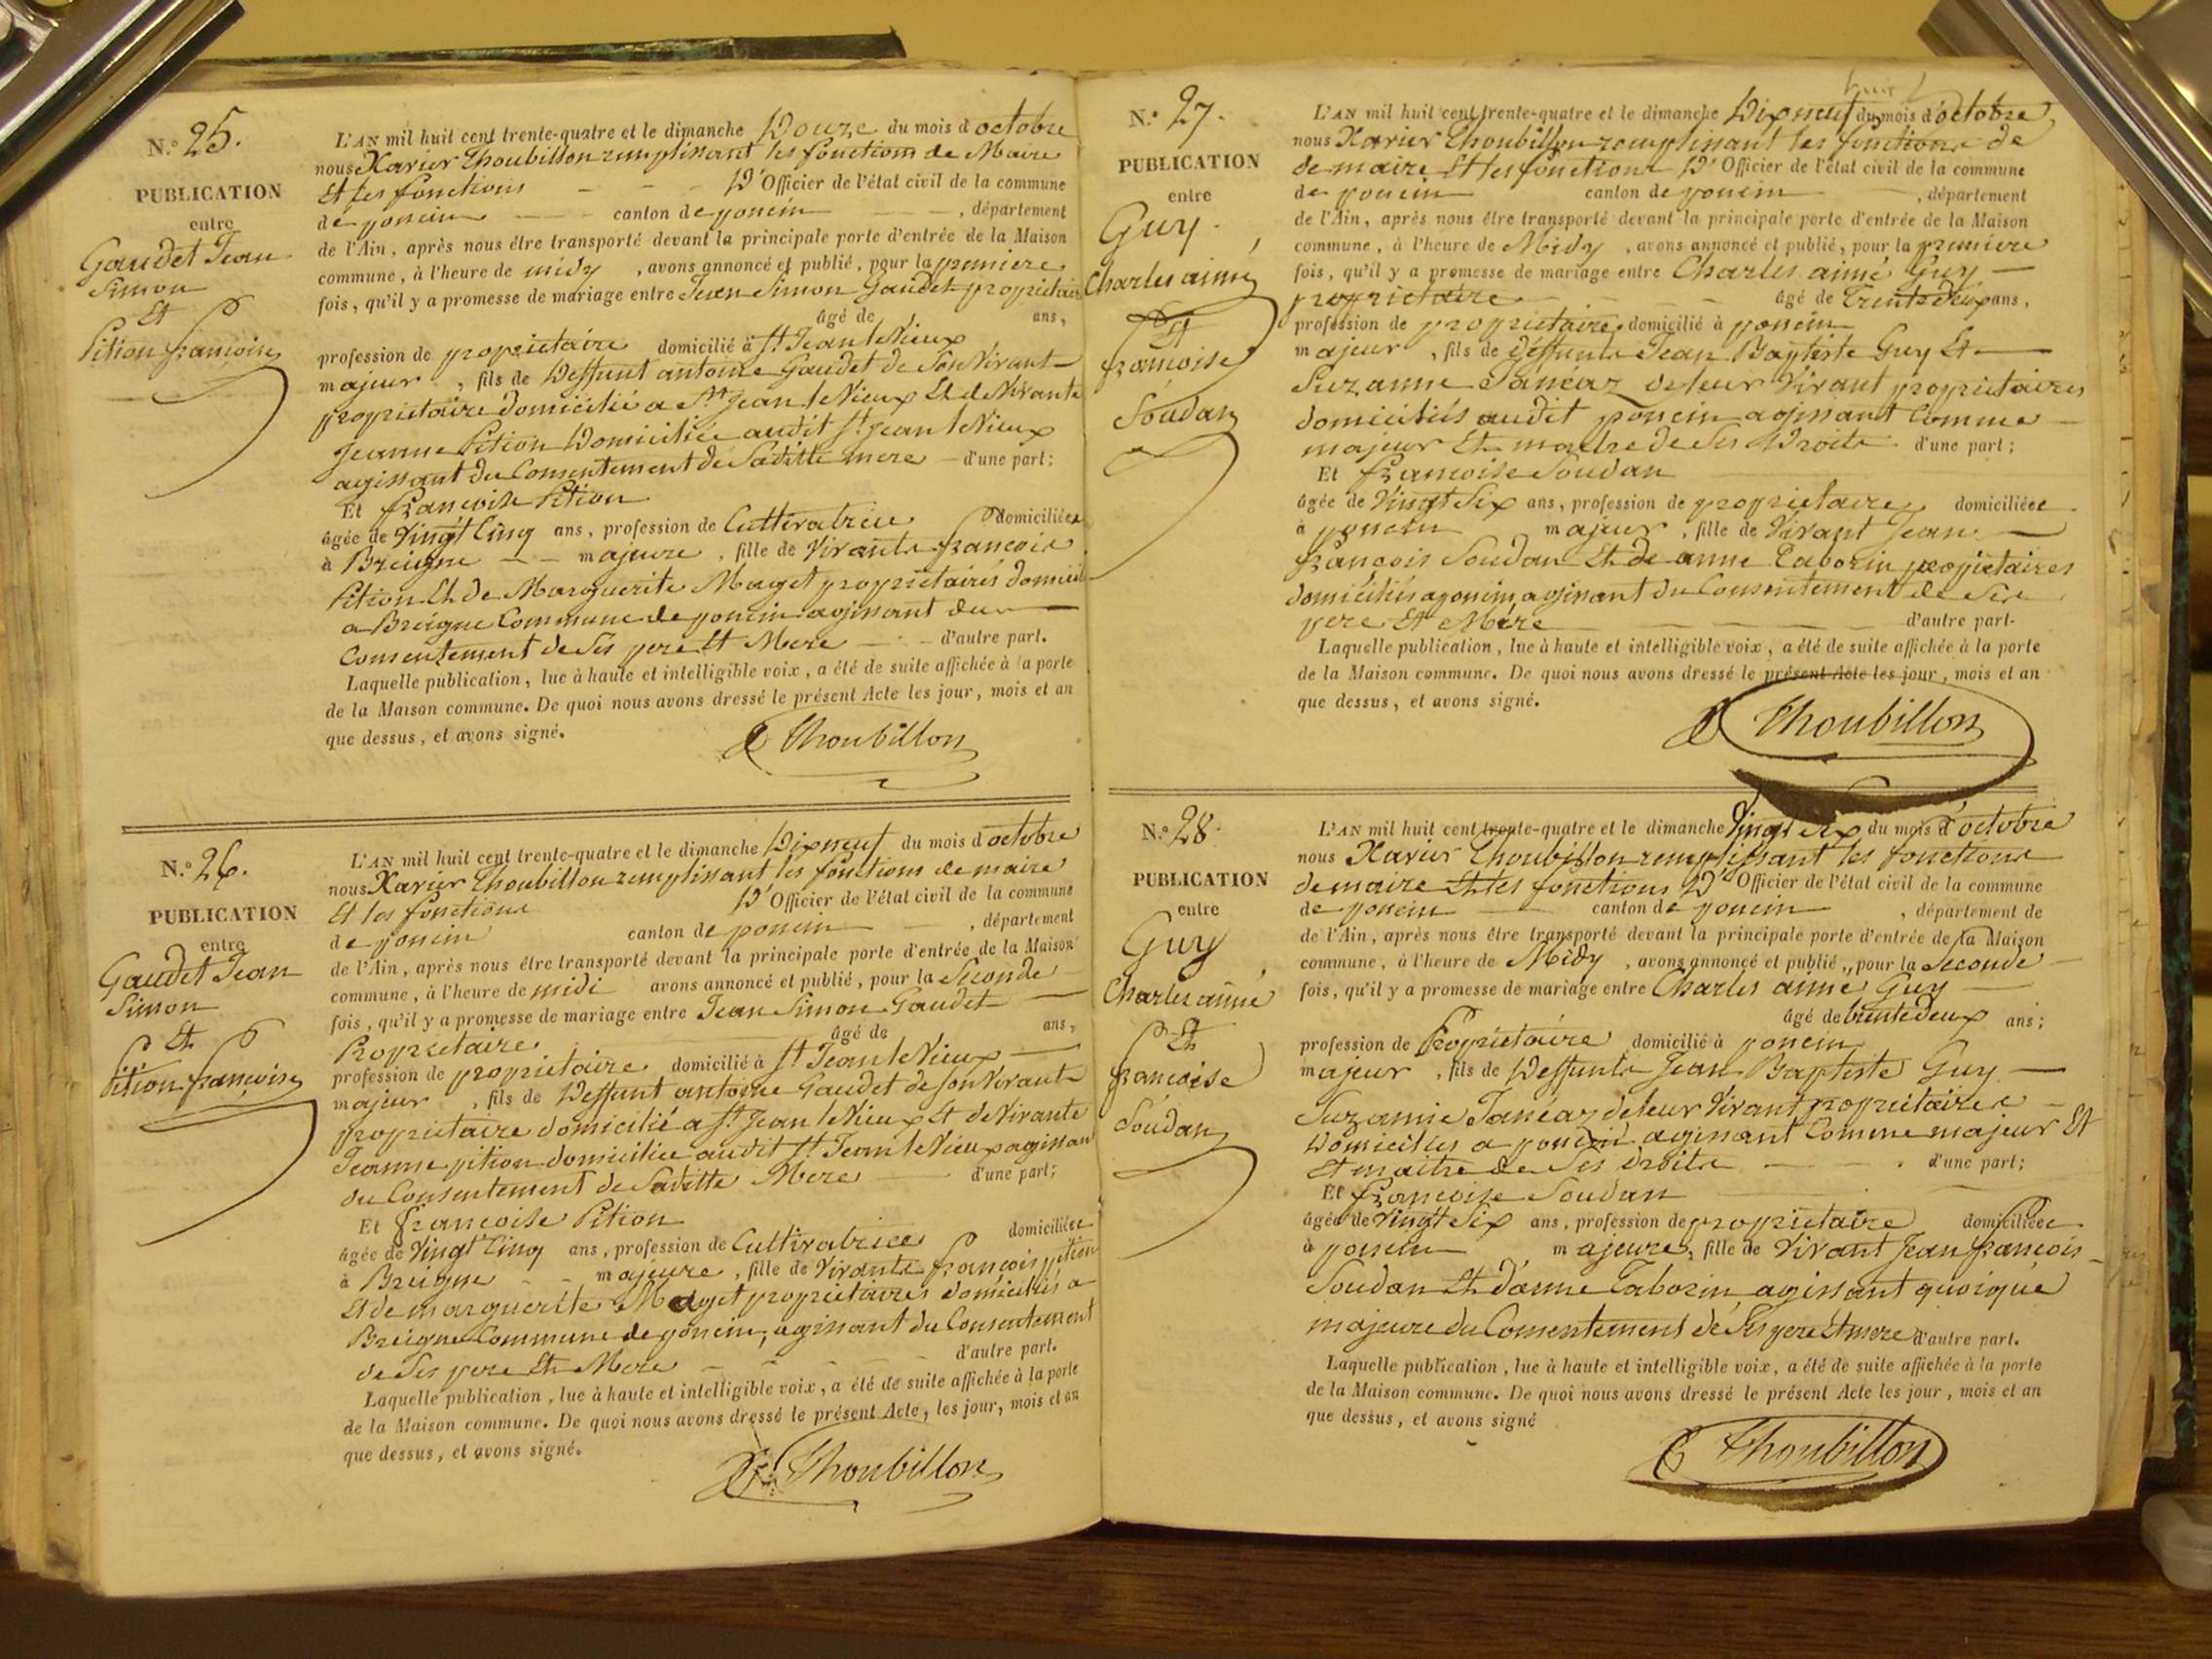 N.º 25.
PUBLICATION
entre
Gaudet Jean
Simon
Et
Pition françoise
L'AN mil huit cent trente-quatre et le dimanche Douze du mois d'octobre
nous Xavier Thoubillon remplissant les fonctions de Maire
Et les fonctions D'Officier de l'état civil de la commune
de poncin canton de poncin , département
de l'Ain, après nous être transporté devant la principale porte d'entrée de la Maison
commune, à l'heure de midy , avons annoncé et publié, pour la premiere
fois, qu'il y a promesse de mariage entre Jean Simon Gaudet proprietaire
âgé de ans,
profession de proprietaire domicilié à St Jean le Vieux
majeur , fils de Deffunt antoine Gaudet de Son Vivant
proprietaire domicilié a St Jean le Vieux Et de Vivante
Jeanne Pition Domiciliée audit St Jean le Vieux
agissant du Consentement de Saditte mere d'une part;
Et françoise Pition
âgée de Vingt Cinq ans, profession de Cultivatrice domiciliée
à Breigne majeure , fille de Vivants françois
Pition Et de Marguerite Maget proprietaires domicil
a Breigne Commune de poncin agissant du
Consentement de Ses pere Et Mere d'autre part.
Laquelle publication, lue à haute et intelligible voix, a été de suite affichée à la porte
de la Maison commune. De quoi nous avons dressé le présent Acte les jour, mois et an
que dessus, et avons signé.
Thoubillon
N.º 26.
PUBLICATION
entre
Gaudet Jean
Simon
Et
Pition françoise
L'AN mil huit cent trente-quatre et le dimanche Dixneuf du mois d'octobre
nous Xavier Thoubillon remplissant les fonctions de maire
Et les fonctions D'Officier de l'état civil de la commune
de poncin canton de poncin , département
de l'Ain, après nous être transporté devant la principale porte d'entrée de la Maison
commune, à l'heure de midi avons annoncé et publié, pour la Seconde
fois, qu'il y a promesse de mariage entre Jean Simon Gaudet
Proprietaire âgé de ans,
profession de proprietaire domicilié à St Jean le Vieux
majeur , fils de Deffunt antoine Gaudet de Son Vivant
proprietaire domicilié a St Jean le Vieux Et de Vivante
Jeanne pition domiciliée audit St Jean le Vieux agissant
du Consentement de Saditte Mere d'une part;
Et françoise Pition
âgée de Vingt Cinq ans, profession de Cultivatrice domiciliée
à Breigne majeure , fille de Vivants françois pition
Et de marguerite Maget proprietaires domiciliés a
Breigne Commune de poncin, agissant du Consentement
de Ses pere Et Mere d'autre part.
Laquelle publication, lue à haute et intelligible voix, a été de suite affichée à la porte
de la Maison commune. De quoi nous avons dressé le présent Acte, les jour, mois et an
que dessus, et avons signé.
Thoubillon
N.º 27.
PUBLICATION
entre
Guy
Charles aimé
Et
françoise
Soudan
L'AN mil huit cent trente-quatre et le dimanche Dixneuf du mois d'octobre
nous Xavier Thoubillon remplissant les fonctions de
de maire Et les fonctions D'Officier de l'état civil de la commune
de poncin canton de poncin , département
de l'Ain, après nous être transporté devant la principale porte d'entrée de la Maison
commune, à l'heure de Midy , avons annoncé et publié, pour la premiere
fois, qu'il y a promesse de mariage entre Charles aimé Guy
proprietaire âgé de Trente deux ans,
profession de proprietaire domicilié à poncin
majeur , fils de deffunts Jean Baptiste Guy Et
Suzanne Janéaz de leur Vivant proprietaires
domiciliés audit poncin agissant Comme
majeur Et maitre de Ses Droits d'une part;
Et françoise Soudan
âgée de Vingt Six ans, profession de proprietaire domiciliée
à poncin majeur , fille de Vivant Jean
françois Soudan Et de anne Taborin proprietaires
domiciliés a poncin, agissant du Consentement de Ses
pere Et Mere d'autre part.
Laquelle publication, lue à haute et intelligible voix, a été de suite affichée à la porte
de la Maison commune. De quoi nous avons dressé le présent Acte les jour, mois et an
que dessus, et avons signé.
Thoubillon
N.º 28.
PUBLICATION
entre
Guy
Charles aimé
Et
françoise
Soudan
L'AN mil huit cent trente-quatre et le dimanche Vingt Six du mois d'octobre
nous Xavier Thoubillon remplissant les fonctions
de maire Et les fonctions D'Officier de l'état civil de la commune
de poncin canton de poncin , département de
de l'Ain, après nous être transporté devant la principale porte d'entrée de la Maison
commune, à l'heure de Midy , avons annoncé et publié, pour la Seconde
fois, qu'il y a promesse de mariage entre Charles aimé Guy
âgé de trente deux ans;
profession de Proprietaire domicilié à poncin
majeur , fils de Deffunts Jean Baptiste Guy
Suzanne Janéaz de leur Vivant proprietaires
Domiciliés a poncin agissant Comme majeur Et
Et maitre de Ses droits d'une part;
Et françoise Soudan
âgée de Vingt Six ans, profession de proprietaire domiciliée
à poncin majeure, fille de Vivant Jean françois
Soudan Et d'anne Taborin agissant quoique
majeure du Consentement de Ses pere Et mere d'autre part.
Laquelle publication, lue à haute et intelligible voix, a été de suite affichée à la porte
de la Maison commune. De quoi nous avons dressé le présent Acte les jour, mois et an
que dessus, et avons signé
Thoubillon